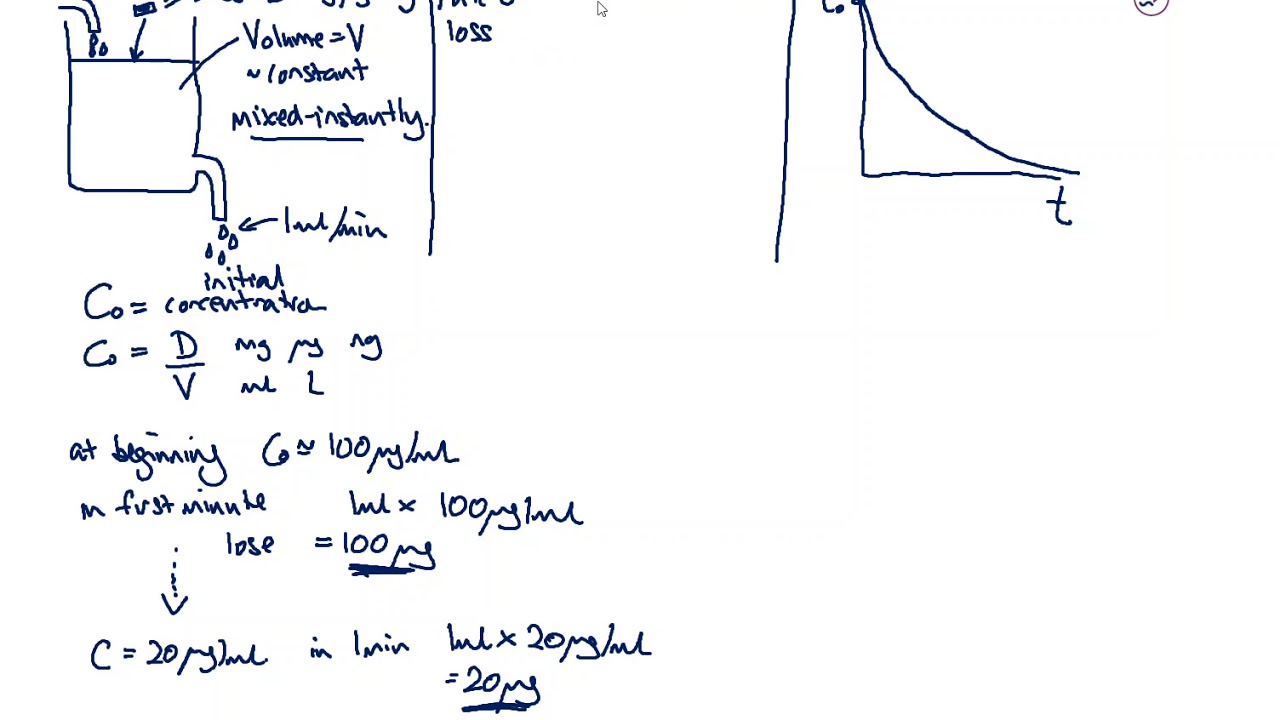 Volume = V
~ constant
mixed-instantly.
loss
t
1ml/min
initial
C₀ = concentration
C₀ = D/V mg µg ng
ml L
at beginning C₀ ≈ 100µg/ml
in first minute 1ml × 100µg/ml
lose = 100µg
C = 20µg/ml in 1min 1ml × 20µg/ml
= 20µg